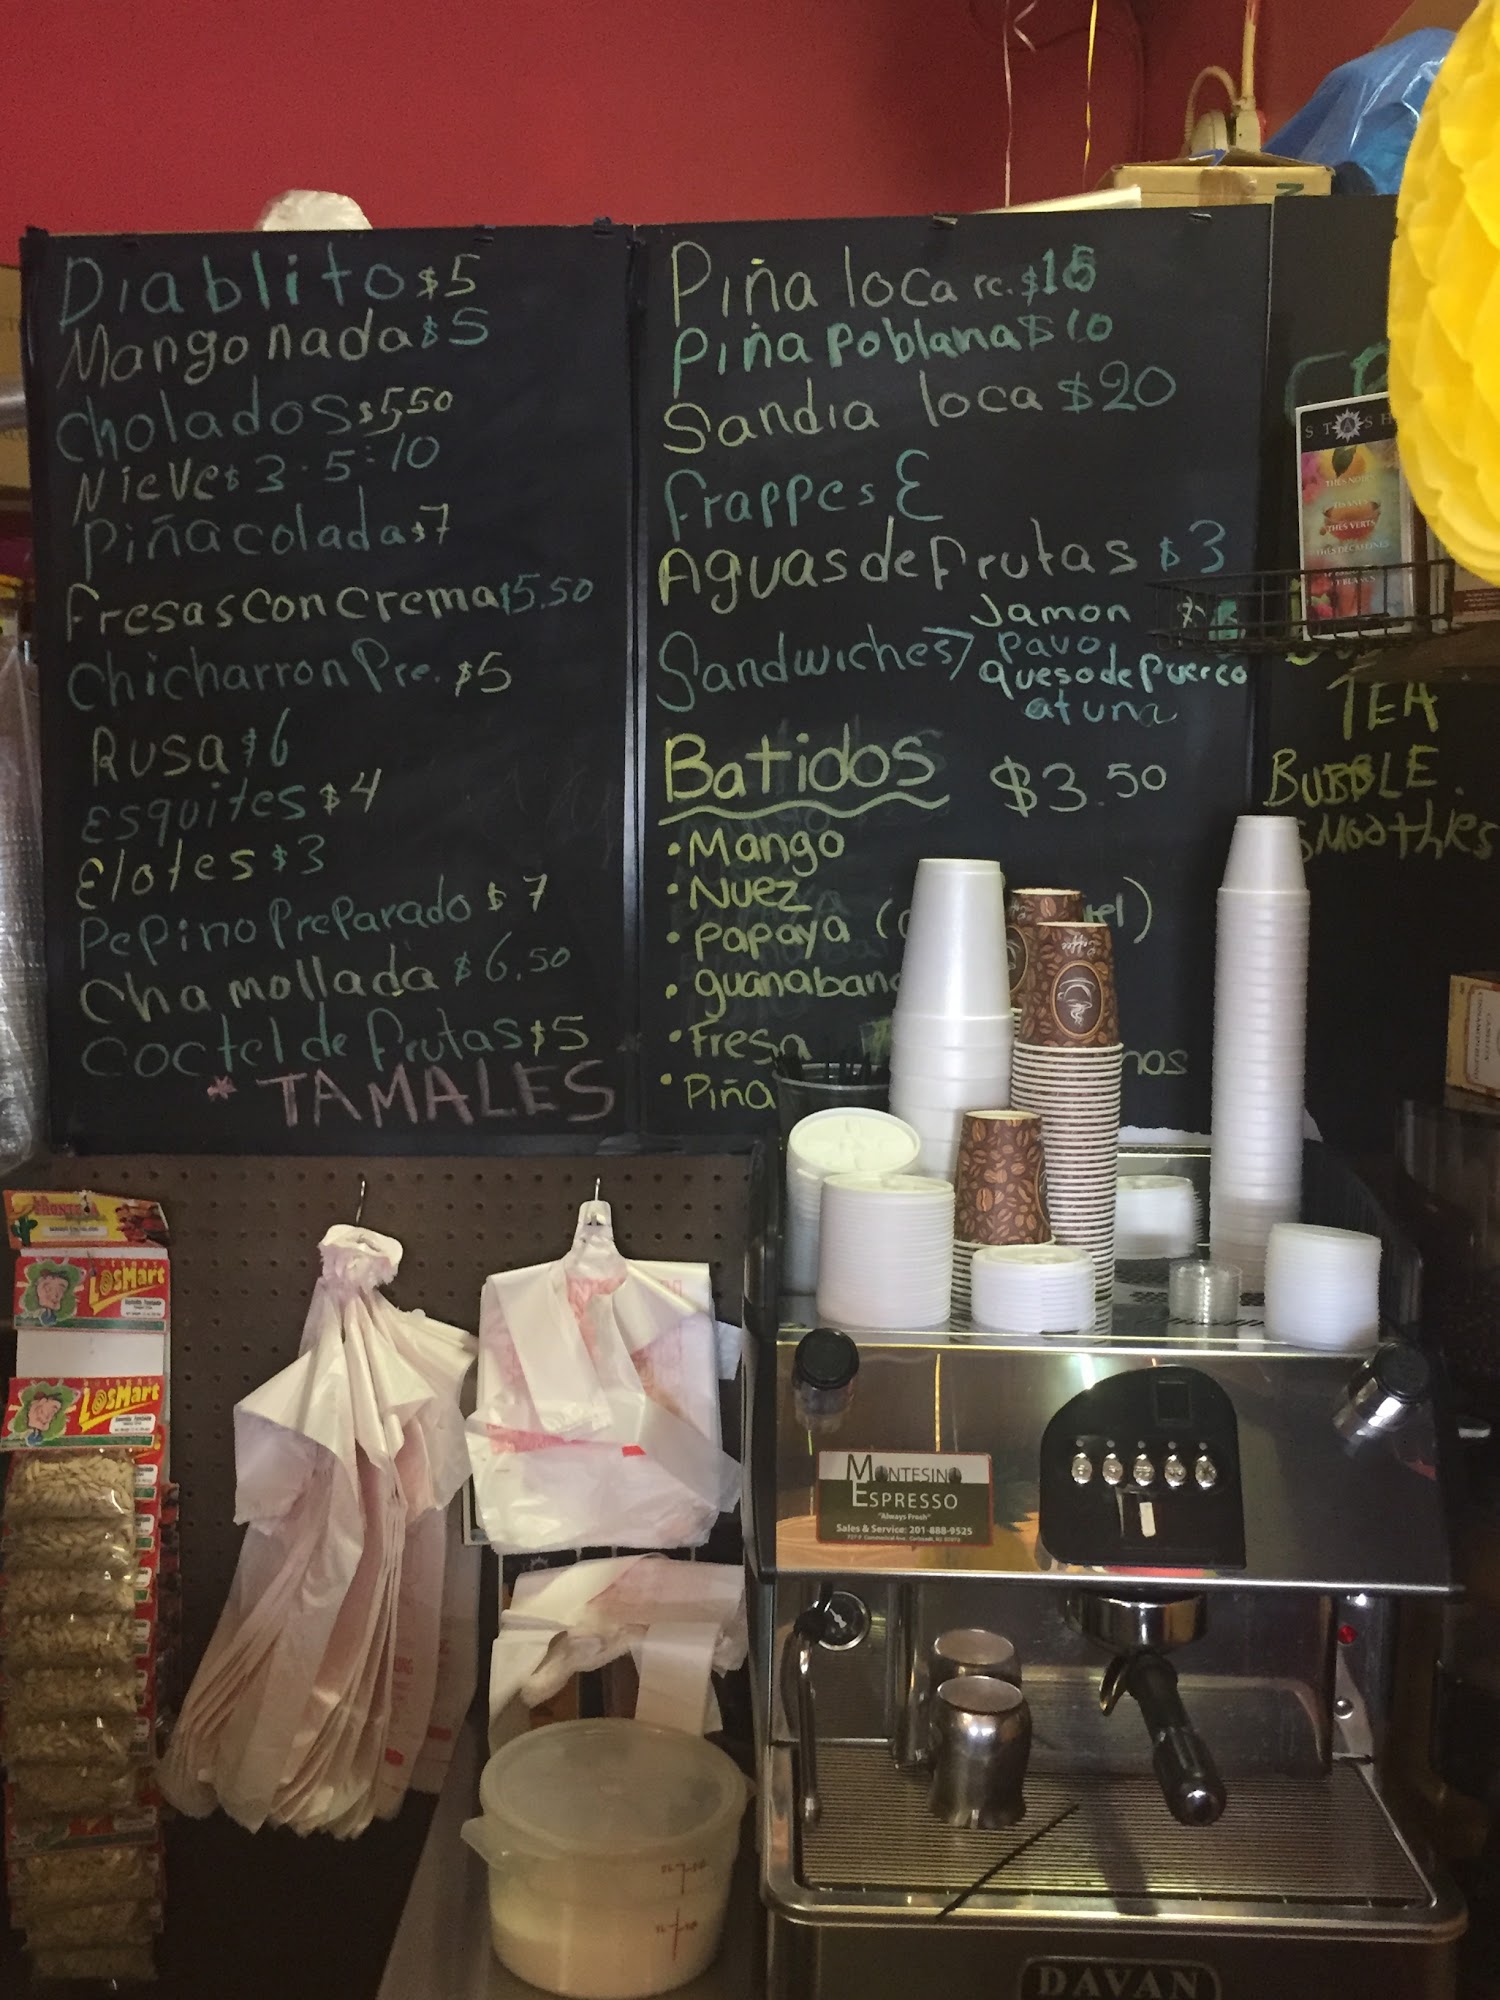 Diablito $5
Mangonada $5
Cholados $5,50
Nieve $ 3 - 5 - 10
Piñacolada $7
Fresas con crema $5.50
Chicharron Pre. $5
Rusa $6
Esquites $4
Elotes $3
Pepino Preparado $7
Chamollada $6,50
Coctel de frutas $5
* TAMALES
Piña loca rc. $15
Piña Poblana $10
Sandia loca $20
Frappes E
Aguas de frutas $3
Sandwiches
Jamon
pavo
queso de puerco
atuna
Batidos $3.50
• Mango
• Nuez
• Papaya
• guanabana
• Fresa
• Piña
TEA
BUBBLE
SMOOTHIES
STASH
THÉS NOIRS
THÉS VERTS
THÉS DÉCAFÉINÉS
LOSMART
LOSMART
Coffee
MONTESINO
ESPRESSO
"Always Fresh"
Sales & Service: 201-888-9525
DAVAN